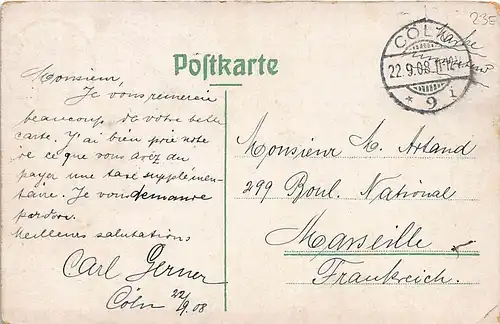 23E
CÖLN
22.9.08.11-12
* 9 i
Postkarte
Monsieur,
Je vous remercie
beaucoup de votre belle
carte. J'ai bien prie note
de ce que vous avez du
payer une taxe supplémen-
taire. Je vous demande
pardon.
Meilleurs salutations
Carl Gerner
Cöln 22/9.08
Monsieur A. Artaud
299 Boul. National
Marseille
Frankreich.